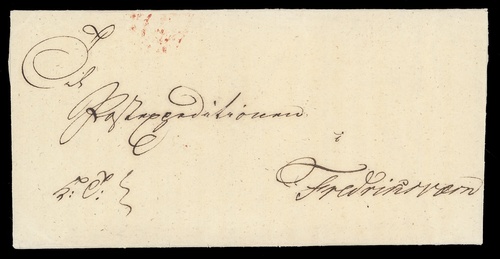 Til
Postexpeditionen
i
K: T:
Fredriksværn